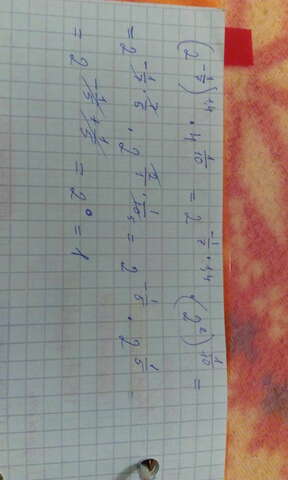 (2^{-\frac{1}{7}})^{1,4} · 4^{\frac{1}{10}} = 2^{-\frac{1}{7} · 1,4} · (2^{2})^{\frac{1}{10}} =
= 2^{-\frac{1}{7} · \frac{7}{5}} · 2^{\frac{2}{1} · \frac{1}{10_{5}}} = 2^{-\frac{1}{5}} · 2^{\frac{1}{5}}
= 2^{-\frac{1}{5} + \frac{1}{5}} = 2^{0} = 1